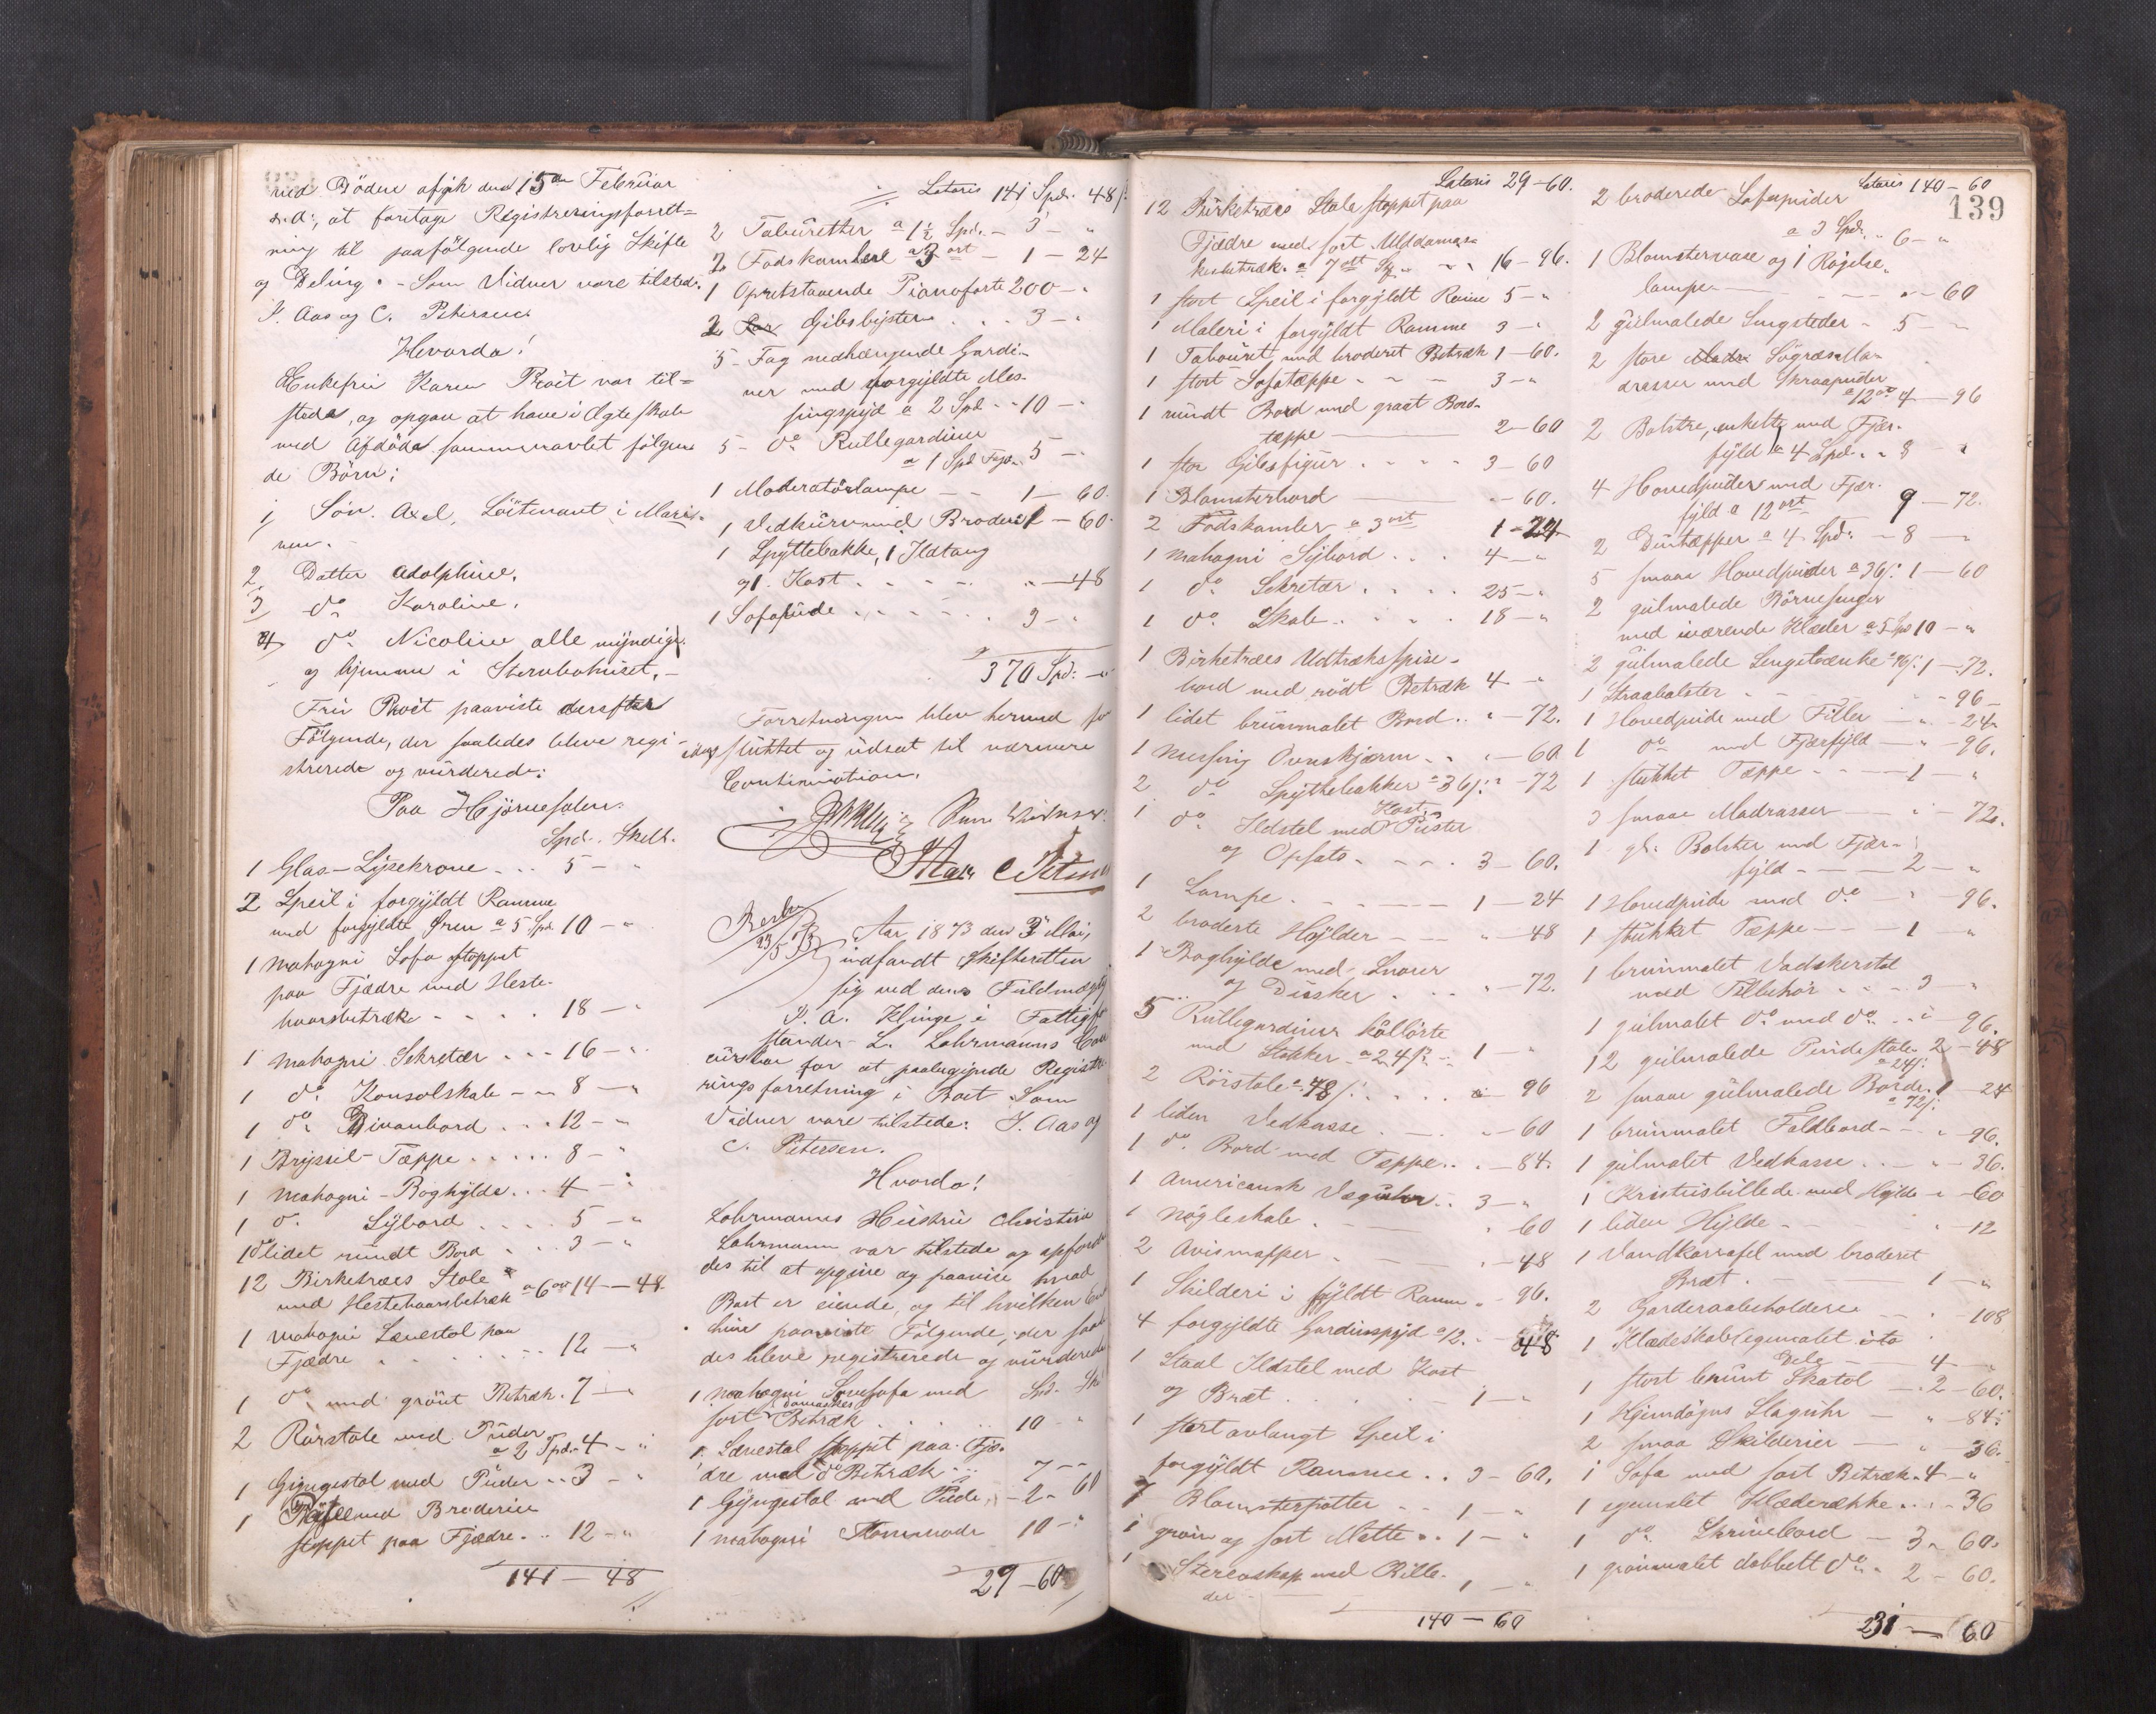 ved Döden afgik den 15de Februar
d. A., at foretage Registreringsforret-
ning til paafölgende lovlig Skifte
og Deling. - Som Vidner vare tilstede.
I. Aas og C. Petersen
Hvorda!
Enkefru Karen Proit var til-
stede, og opgav at have i Ægteskab
med Afdöde sammenavlet fölgen-
de Börn:
1, Sön. Axel, Löitenant i Mari-
nen.
2, Datter Adolphine.
3, do Karoline.
4, do Nicoline alle myndige
og hjemme i Sterbohuset. -
Fru Proit paaviste derefter
Fölgende, der saaledes bleve regi-
strerede og vurderede:
Paa Hjørnesalen.
Spd. Skill.
1 Glas-Lysekrone - - - 5 - "
2 Speil i forgyldt Ramme
med forgyldte Ören a 5 Spd. 10 - "
1 mahogni Sofa stoppet
paa Fjædre med Heste-
haarsbetræk - - - - 18 - "
1 mahogni Sekretær - - - 16 - "
1 do Konsolskab - - 8 - "
1 do Divanbord - - - 12 - "
1 Bryssel-Tæppe - - - - 8 - "
1 mahogni-Boghylde - - - 4 - "
1 do Sybord - - - - 5 - "
1 do lidet rundt Bord - - - 3 - "
12 Birketræes Stole
med Hestehaarsbetræk a 6 ort 14 - 48
1 mahogni Lænestol paa
Fjædre - - - - - 12 - "
1 do med grönt Betræk. 7 - "
2 Rörstole med Puder
a 2 Spd. 4 - "
1 Gyngestol med Puder - - 3 - "
1 med Broderie
stoppet paa Fjædre - - 12 - "
141 - 48
Lateris 141 Spd. 48 s.
2 Tabüretter a 1½ Spd. - 3 - "
2 Fodskamler a 3 ort - 1 - 24
1 Opretstaaende Pianoforte 200 - "
2 Gibsbyster - - - 3 - "
5 Fag nedhængende Gardi-
ner med forgyldte Mes-
singspyd a 2 Spd. - 10 - "
5 - do Rullegardiner
a 1 Spd Fag. 5 - "
1 Moderatörlampe - - 1 - 60.
1 Vedkurv med Broderi 1 - 60.
1 Spyttebakke, 1 Ildtang
og 1 Kost - - - - " - 48
1 Sofapude - - - - 3 - "
370 Spd. - "
Forretningen blev hermed fore-
löbig sluttet og udsat til nærmere
Continuation.
Aar 1873 den 3 Mai,
indfandt Skifteretten
sig ved dens Fuldmægtig
P. A. Klinge i Fattigfor-
stander L. Lohrmanns Con-
cursbo for at paabegynde Registre-
ringsforretning i Boet Som
Vidner vare tilstede: I. Aas og
C. Petersen.
Hvorda!
Lohrmanns Hustru Christine
Lohrmann var tilstede og opfordre-
des til at opgive og paavise hvad
Boet er eiende, og til hvilken
hun paaviste Fölgende, der saale-
des bleve registrerede og vurderede
Spd. Sk
1 mahogni Sovesofa med
sort damaskes Betræk - - - 10 - "
1 Lænestol stoppet paa Fjæ-
dre med do Betræk - - 7 - "
1 Gyngestol med Pude - - 2 - 60
1 mahogni Kommode 10 - "
29 - 60
139
Lateris 29 - 60.
12 Birketræes Stole stoppet paa
Fjædre med sort Ulddamas-
kesbetræk a 7 ort Sk. - - 16 - 96.
1 stort Speil i forgyldt Ramme 5 - "
1 Maleri i forgyldt Ramme 3 - "
1 Tabouret med broderet Betræk 1 - 60.
1 stort Sofatæppe - - - 3 - "
1 rundt Bord med graat Bord-
tæppe 2 - 60
1 stor Gibsfigur - - - 3 - 60
1 Blomsterbord " - 60.
2 Fodskamler a 3 ort 1 - 24
1 mahogni Sybord - - - 4 - "
1 do Sekretær - - - - 25 - "
1 do Skab - - - - 18 - "
1 Birketræes Udtræksspise-
bord med rödt Betræk 4 - "
1 lidet brunmalet Bord - - " - 72.
1 messing Ovnskjærm - - " - 60
2 do Spyttebakker a 36 s. " - 72
1 do Ildstel med Kost, Puster
og Opsats - - - 3 - 60.
1 Lampe - - - - 1 - 24
2 broderte Hylder - - " - 48
1 Boghylde med Snorer
og Dusker - - - " - 72.
5 Rullegardiner kollörte
med Stokker a 24 s. - 1 - "
2 Rörstole a 48 s. - - - " 96
1 liden Vedkasse - - " - 60
1 do Bord med Tæppe - - " - 84.
1 Americansk Væguhr - - 3 - "
1 Nögleskab - - " 60
2 Avismapper - - - " - 48
1 Skilderi i fgyldt Ramm - " - 96.
4 forgyldte Gardinspyd a 12. - " 48
1 Staal Ildstel med Kost
og Bræt - - - - 1 - "
1 stort avlangt Speil i
forgyldt Ramme - - 3 - 60.
7 Blomsterpotter - - 1 - "
1 grön og sort Matte - - 1 - "
1 Stereoskop med Bille-
der - 1 - "
140 - 60
Lateris 140 - 60
2 broderede Sofapuder
a 3 Spd. - 6 - "
1 Blomstervase og 1 Rögelse-
lampe - - - " - 60
2 gulmalede Sengsteder - 5 - "
2 store Sögræs-Ma-
dresser med Skraapuder
a 12 ort 4 - 96
2 Bolstre, enkelte med Fjær-
fyld a 4 Spd. - - 8 - "
4 Hovedpuder med Fjær-
fyld a 12 ort 9 - 72.
2 Duntæpper a 4 Spd. - 8 - "
5 smaae Hovedpuder a 36 s. 1 - 60
2 gulmalede Börnesenger
med iværende Klæder a 5 Spd 10 - "
2 gulmalede Sengebænke a 96 s. 1 - 72.
1 Straabolster - - " - 96 -
1 Hovedpude med Filler - " - 24
1 do med Fjærfyld - " - 96.
1 stukket Tæppe - - - 1 - "
3 smaae Madrasser - - " - 72.
1 gl. Bolster med Fjær-
fyld - - - - 2 - "
1 Hovedpude med do - " - 96.
1 stukket Tæppe - - - 1 - "
1 brunmalet Vadskerstol
med Tilbehör - - - 3 - "
1 gulmalet do med do - - " - 96.
12 gulmalede Pindestole 2 - 48
a 24 s.
2 smaae gulmalede Borde 1 - 24
a 72 s.
1 brunmalet Foldbord - - " - 96.
1 gulmalet Vedkasse - - " - 36.
1 Kristusbillede med Hylde - " - 60
1 liden Hylde - - - " - 12
1 Vandkarraffel med broderet
Bræt - - 1 - "
2 Garderobeholdere - " - 108
1 Klædeskab egemalet i to
Dele - 4 - "
1 stort brunt Skatol - 2 - 60.
1 Hjemdögns Slaguhr - " - 84.
2 smaa Skilderier - " - 36.
1 Sofa med sort Betræk - 4 - "
1 egemalet Klæderække - - " - 36
1 do Skrivebord - 3 - 60.
1 grönmalet dobbelt do - 2 - 60.
231 - 60